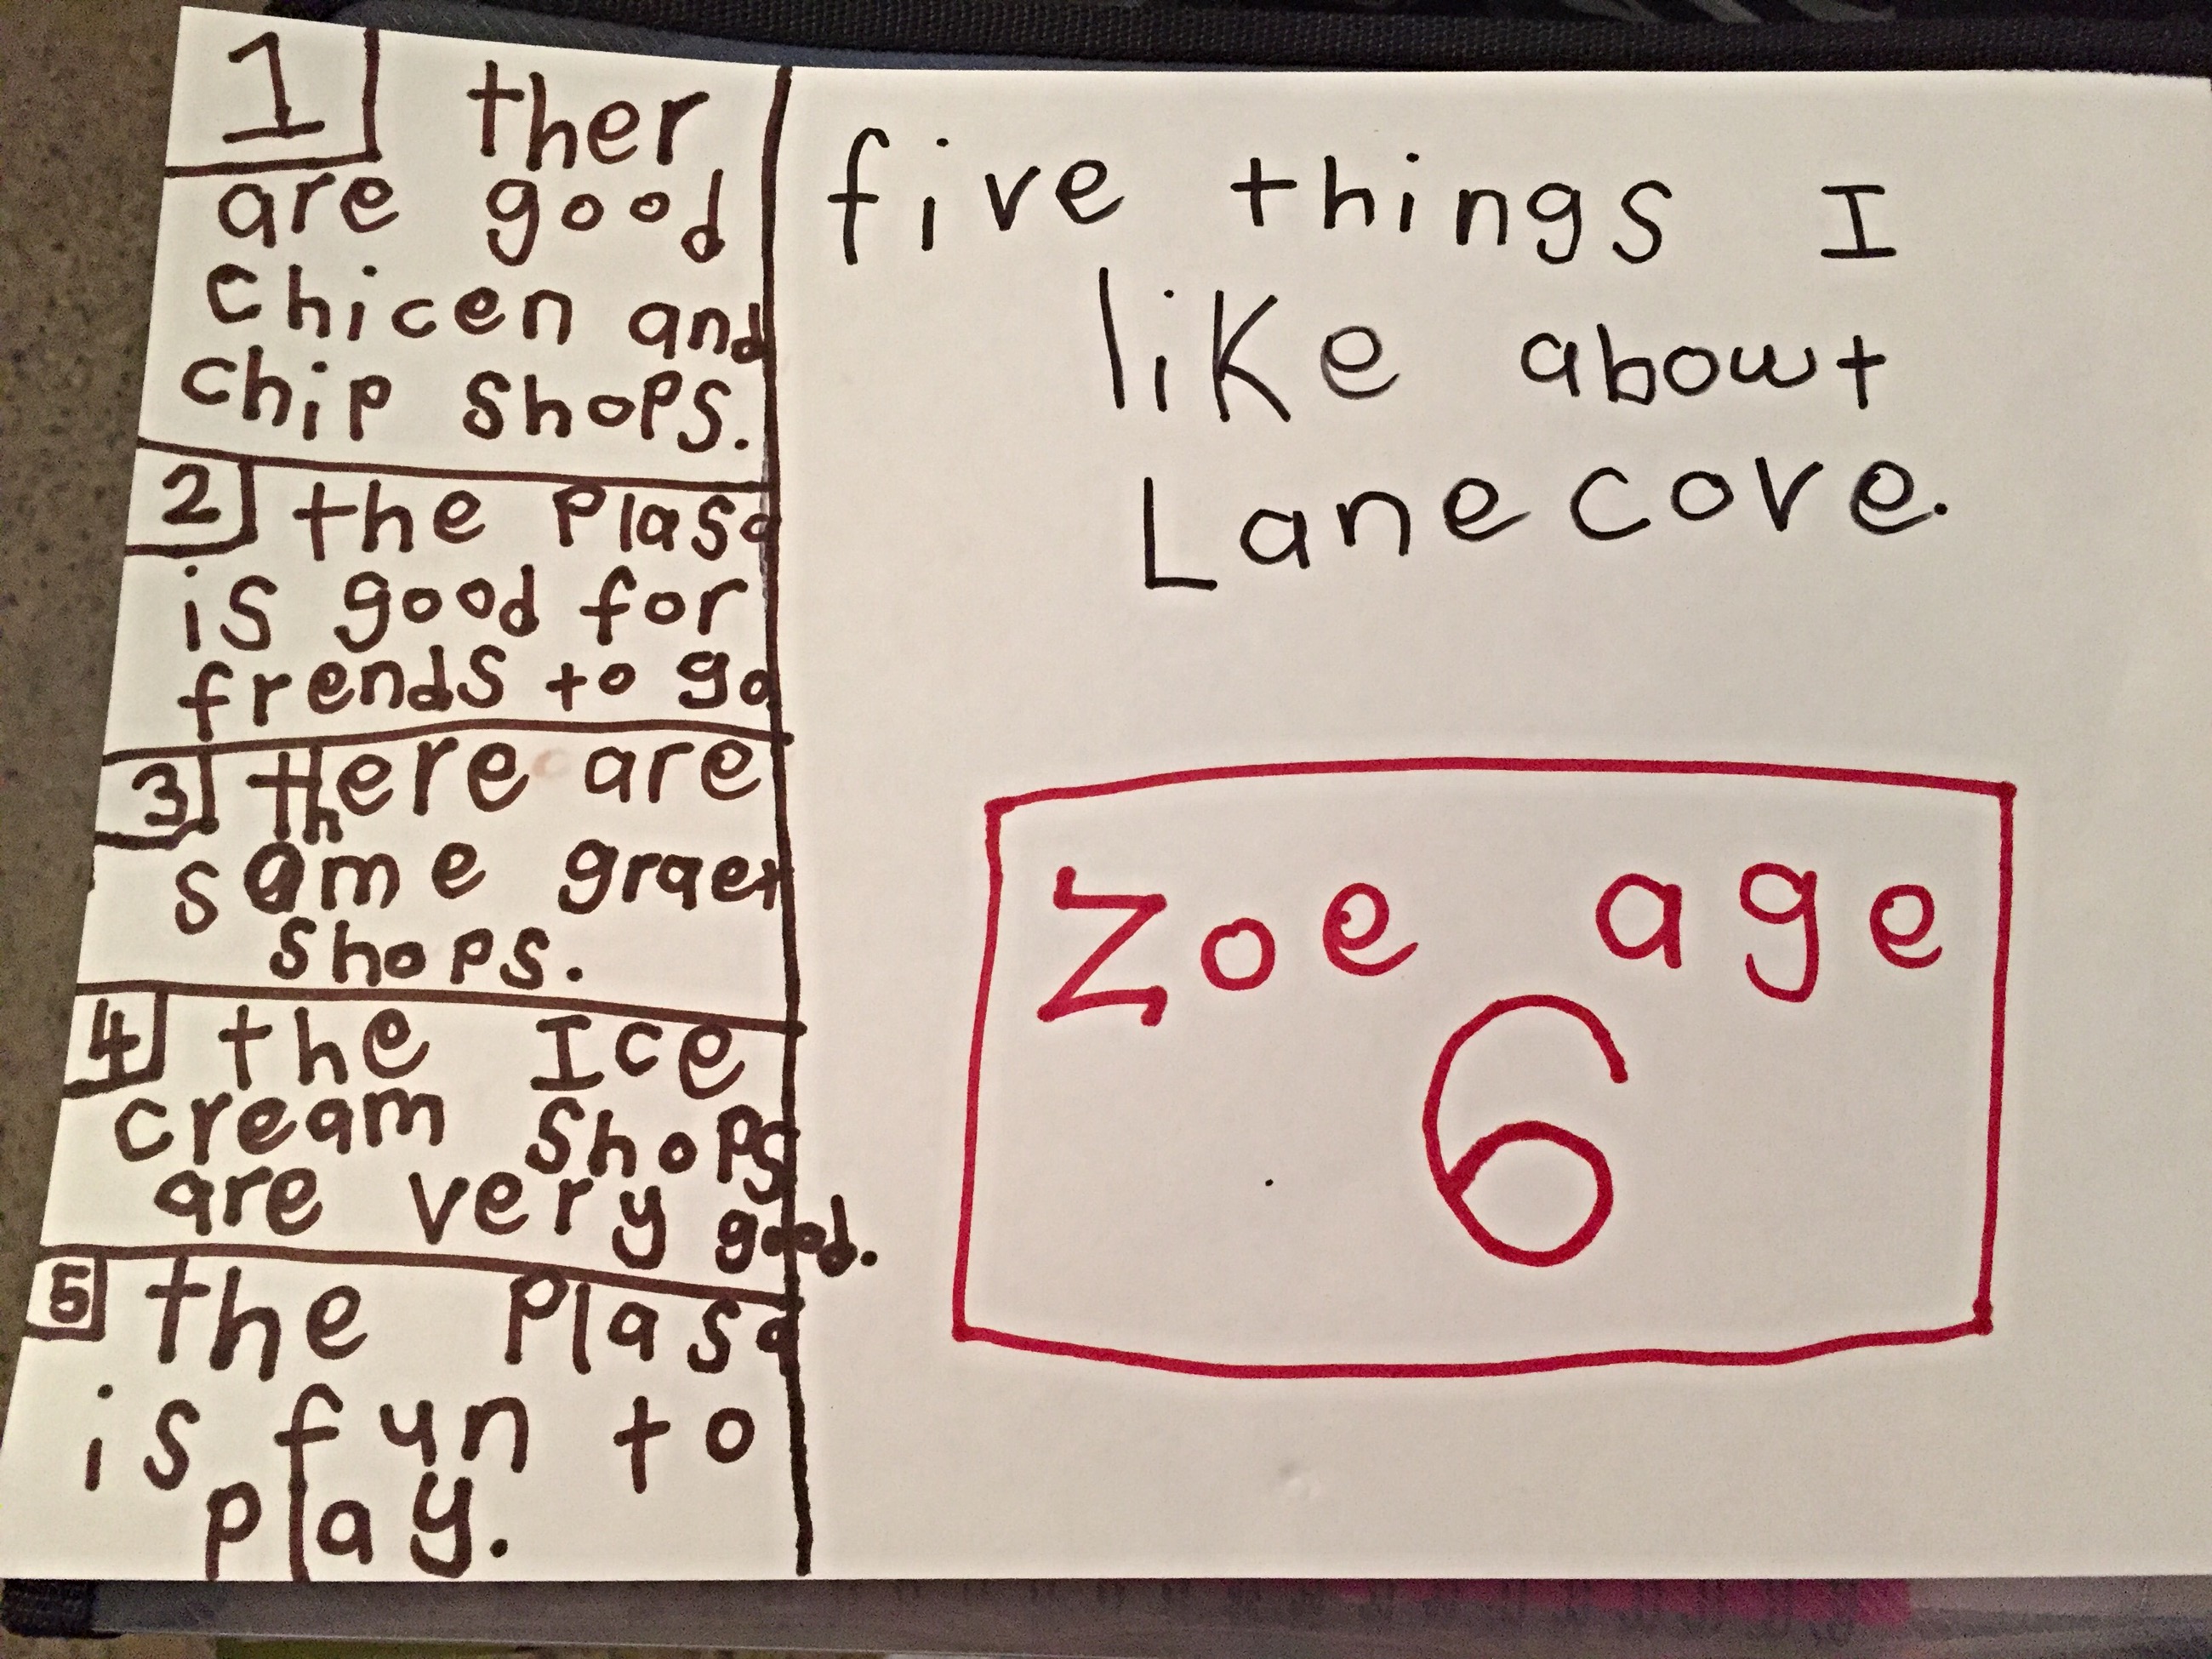 1 ther
are good
chicen and
chip shops.
2 the Plasa
is good for
frends to go
3 there are
some graet
shops.
4 the Ice
cream Shops
are very good.
5 the Plasa
is fun to
play.
five things I
like abowt
Lane cove.
Zoe age
6